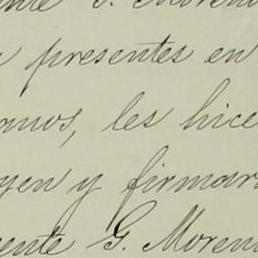 ente G. Moreno
presentes en
anos, les hice
yen y firmar
cente G. Moreno